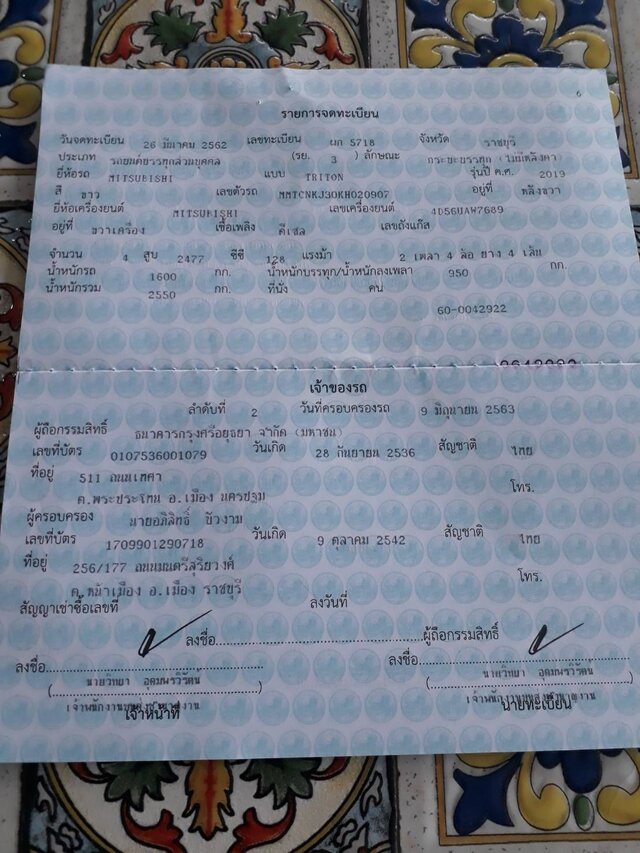 6
รายการจดทะเบียน
วันจดทะเบียน 26 มีนาคม 2562 เลขทะเบียน ผก 5718 จังหวัด ราชบุรี
ประเภท รถยนต์บรรทุกส่วนบุคคล (รย. 3 ) ลักษณะ กระบะบรรทุก (ไม่มีหลังคา)
ยี่ห้อรถ MITSUBISHI แบบ TRITON รุ่นปี ค.ศ. 2019
สี ขาว เลขตัวรถ MMTCNKJ30KH020907 อยู่ที่ พลังขวา
ยี่ห้อเครื่องยนต์ MITSUBISHI เลขเครื่องยนต์ 4D56UAW7689
อยู่ที่ ขวาเครื่อง เชื้อเพลิง ดีเซล เลขถังแก๊ส
จำนวน 4 สูบ 2477 ซีซี 128 แรงม้า 2 เพลา 4 ล้อ ยาง 4 เส้น
น้ำหนักรถ 1600 กก. น้ำหนักบรรทุก/น้ำหนักลงเพลา 950 กก.
น้ำหนักรวม 2550 กก. ที่นั่ง คน
60-0042922
เจ้าของรถ
ลำดับที่ 2 วันที่ครอบครองรถ 9 มิถุนายน 2563
ผู้ถือกรรมสิทธิ์ ธนาคารกรุงศรีอยุธยา จำกัด (มหาชน)
เลขที่บัตร 0107536001079 วันเกิด 28 กันยายน 2536 สัญชาติ ไทย
ที่อยู่ 511 ถนนเทศา
ต.พระประโทน อ.เมือง นครปฐม โทร.
ผู้ครอบครอง นายอภิสิทธิ์ บัวงาม
เลขที่บัตร 1709901290718 วันเกิด 9 ตุลาคม 2542 สัญชาติ ไทย
ที่อยู่ 256/177 ถนนมนตรีสุริยวงศ์
ต.หน้าเมือง อ.เมือง ราชบุรี โทร.
สัญญาเช่าซื้อเลขที่ ลงวันที่
ลงชื่อ ผู้ถือกรรมสิทธิ์
ลงชื่อ ลงชื่อ
( นายวิทยา อุดมพรวิรัตน์ ) ( นายวิทยา อุดมพรวิรัตน์ )
เจ้าพนักงานขนส่งชำนาญงาน เจ้าพนักงานขนส่งชำนาญงาน
เจ้าหน้าที่ นายทะเบียน